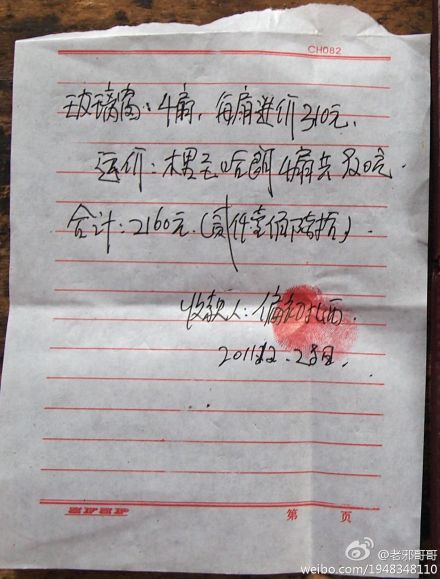 CH082
玻璃窗:4扇,每扇进价310元,
运价:木里至哈朗4扇共920元.
合计:2160元.(贰仟壹佰陆拾)
收款人:偏初扎西.
2011.
第 页
@老邪哥哥
weibo.com/1948348110